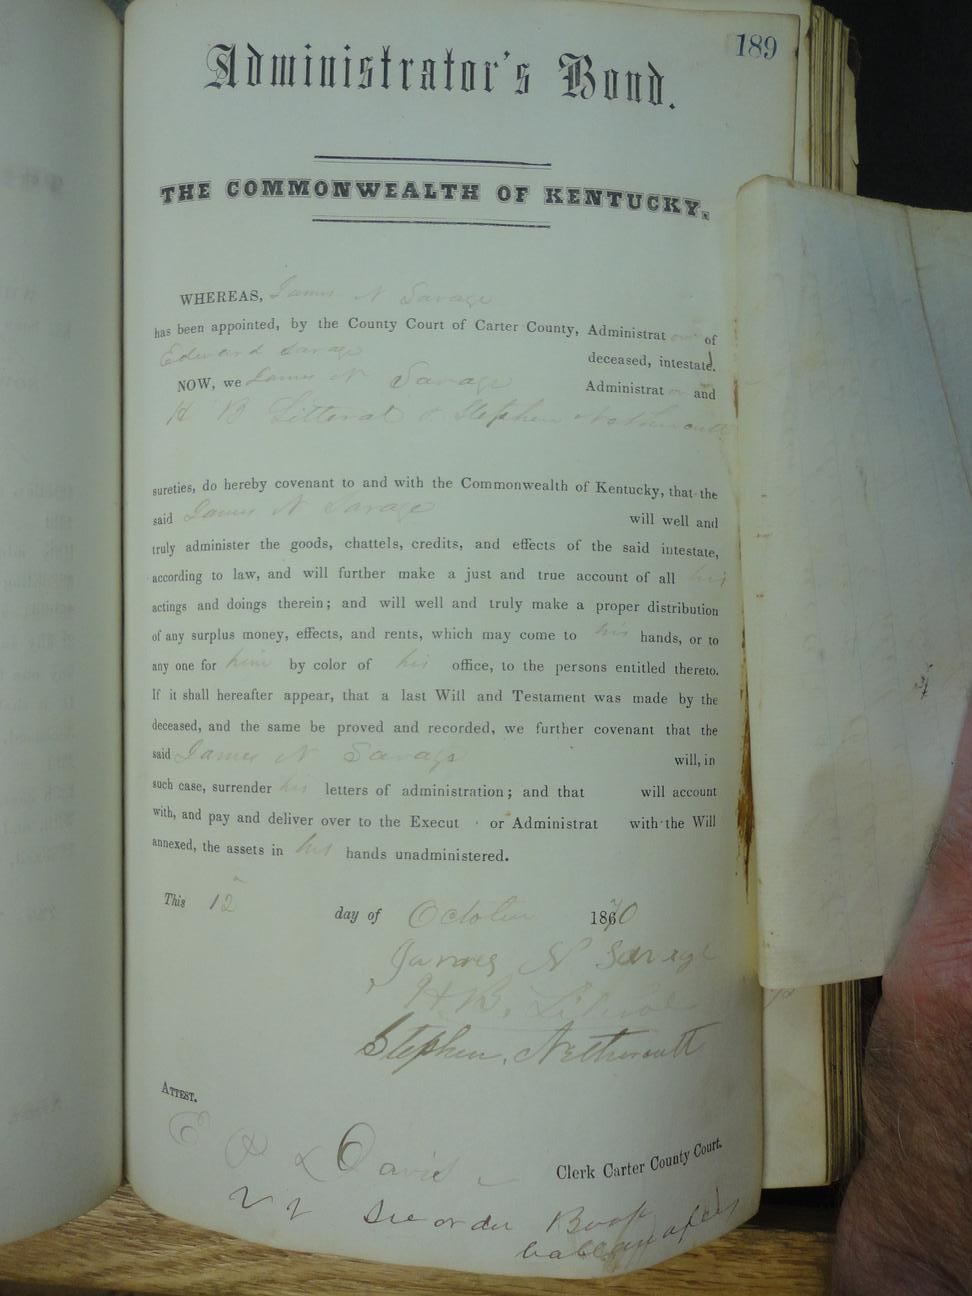 189
Administrator's Bond.
THE COMMONWEALTH OF KENTUCKY,
WHEREAS, James N Savage
has been appointed, by the County Court of Carter County, Administrator of
Edward Savage deceased, intestate.
NOW, we James N Savage Administrator and
H B Litteral & Stephen Nethercutt
sureties, do hereby covenant to and with the Commonwealth of Kentucky, that the
said James N Savage will well and
truly administer the goods, chattels, credits, and effects of the said intestate,
according to law, and will further make a just and true account of all his
actings and doings therein; and will well and truly make a proper distribution
of any surplus money, effects, and rents, which may come to his hands, or to
any one for him by color of his office, to the persons entitled thereto.
If it shall hereafter appear, that a last Will and Testament was made by the
deceased, and the same be proved and recorded, we further covenant that the
said James N Savage will, in
such case, surrender his letters of administration; and that will account
with, and pay and deliver over to the Execut or Administrat with the Will
annexed, the assets in his hands unadministered.
This 12 day of October 1870
James N Savage
H. B. Litteral
Stephen, Nethercutt
ATTEST.
Davis Clerk Carter County Court.
See order Book